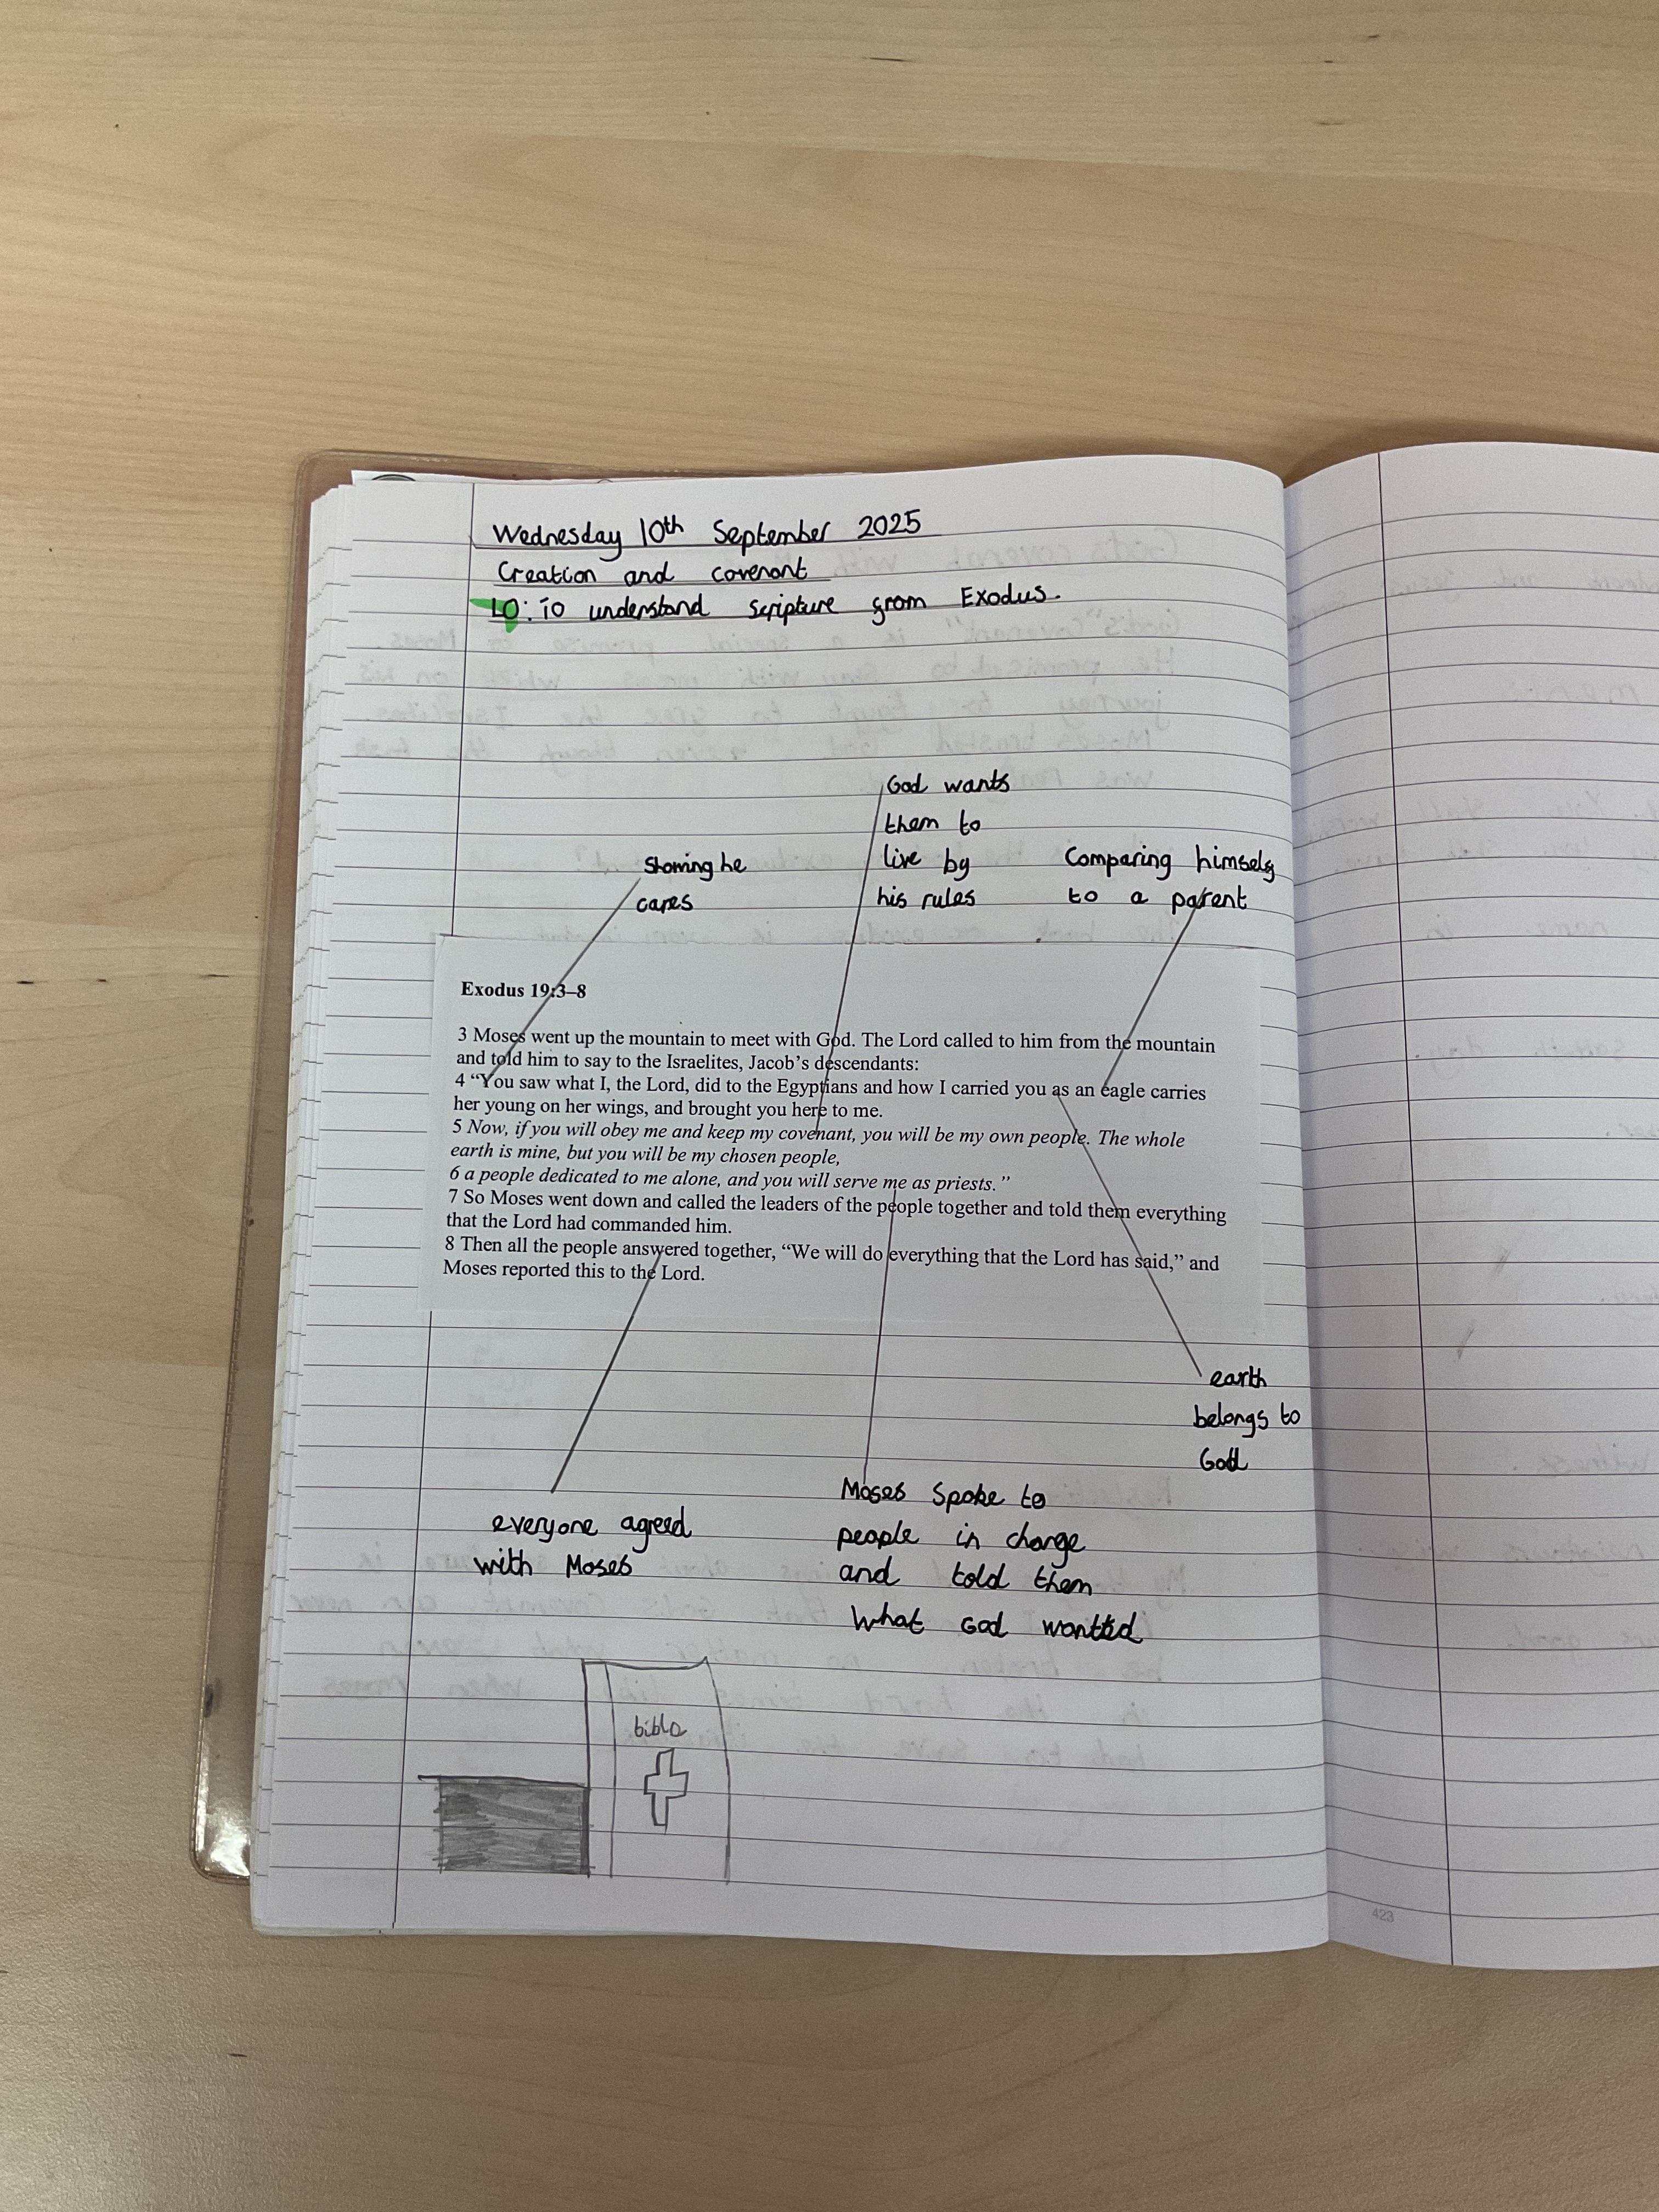 Wednesday 10th September 2025
Creation and covenant
LO: To understand scripture from Exodus.
God wants
them to
live by
his rules
Showing he
cares
Comparing himself
to a parent
Exodus 19:3–8
3 Moses went up the mountain to meet with God. The Lord called to him from the mountain
and told him to say to the Israelites, Jacob's descendants:
4 “You saw what I, the Lord, did to the Egyptians and how I carried you as an eagle carries
her young on her wings, and brought you here to me.
5 Now, if you will obey me and keep my covenant, you will be my own people. The whole
earth is mine, but you will be my chosen people,
6 a people dedicated to me alone, and you will serve me as priests.”
7 So Moses went down and called the leaders of the people together and told them everything
that the Lord had commanded him.
8 Then all the people answered together, “We will do everything that the Lord has said,” and
Moses reported this to the Lord.
earth
belongs to
God
everyone agreed
with Moses
Moses Spoke to
people in charge
and told them
what God wanted
bible
423